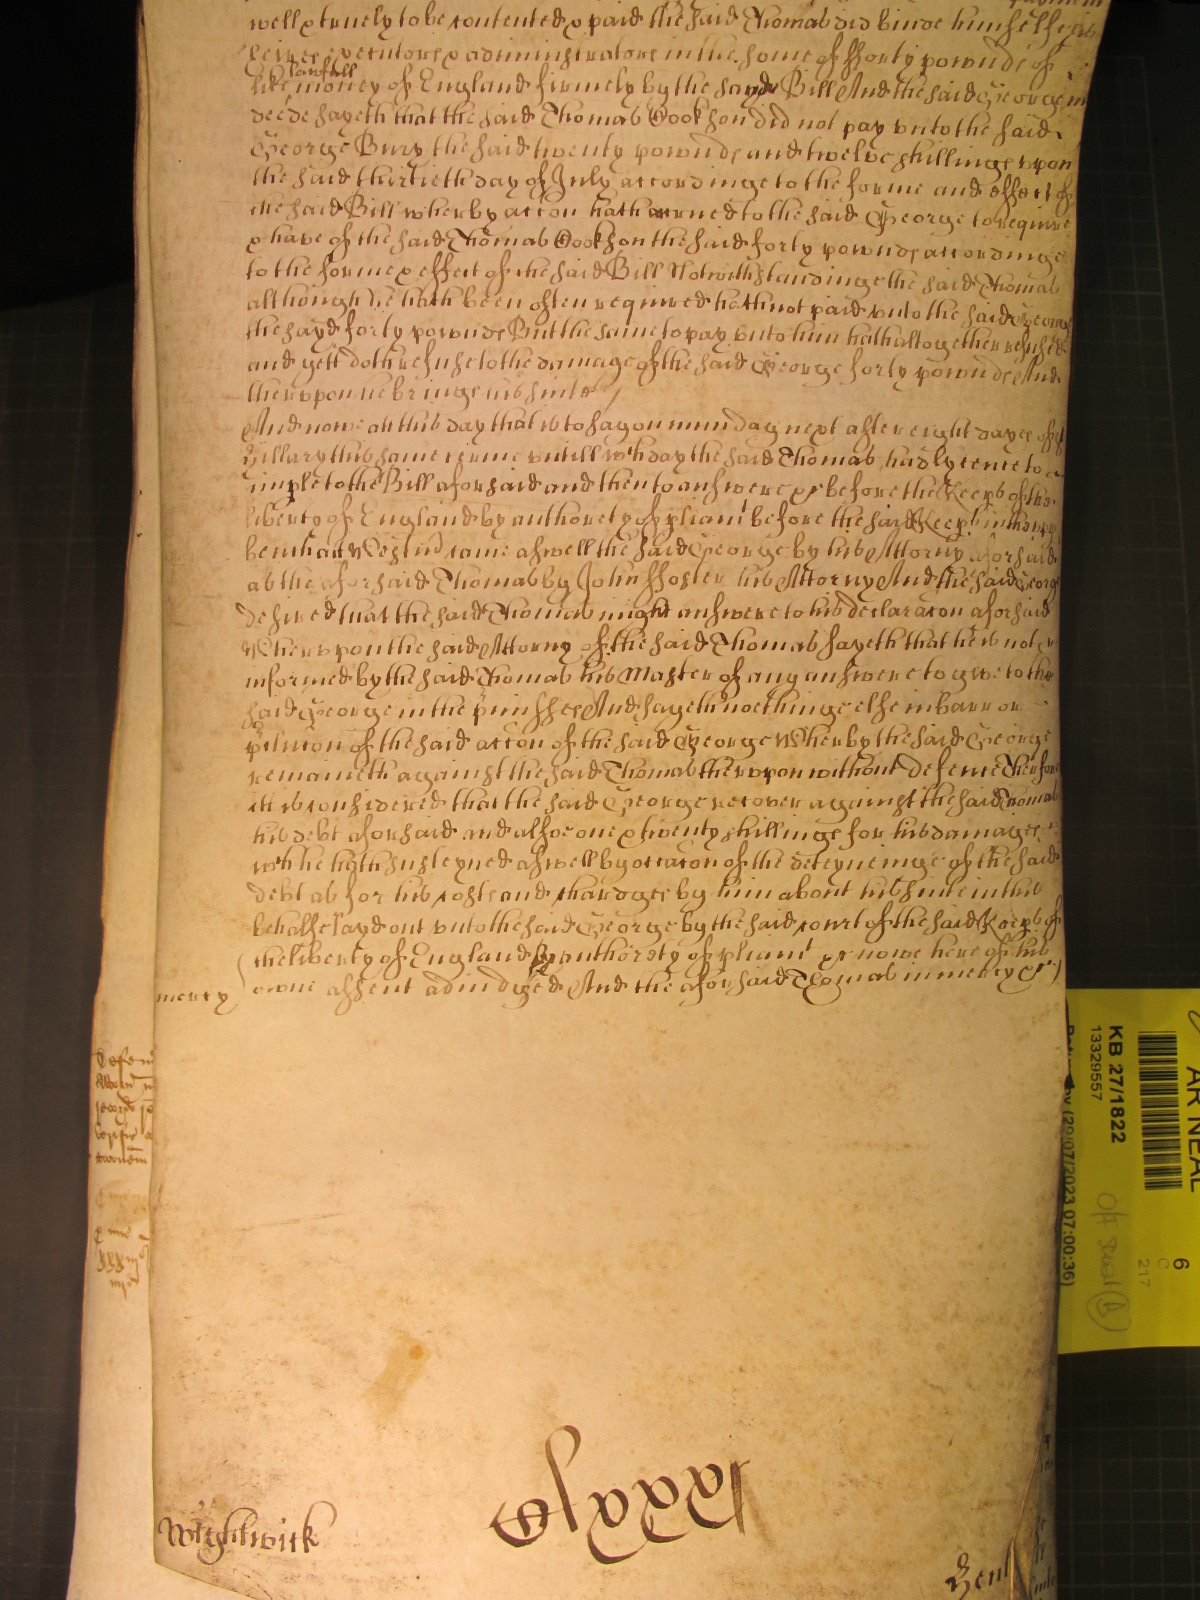 payment
well & truely to be contented & paid the said Thomas did binde himselfe his
heires executors & administrators in the some of fforty pownds of
like lawfull money of England firmely by the sayd Bill And the said George in
deede sayeth that the said Thomas Cookson did not pay unto the said
George Bury the said twenty pownds and twelve shillings upon
the said thirtieth day of July accordinge to the forme and effect of
the said Bill wherby accon hath acrued to the said George to require
& have of the said Thomas Cookson the said forty pownds accordinge
to the forme & effect of the said Bill Notwithstandinge the said Thomas
although he hath been often required hath not paid unto the said George
the sayd forty pownds But the same to pay unto him hath altogether refused
and yett doth refuse to the damage of the said George forty pownds And
therupon he bringe his suite
And nowe att this day that is to say on munday next after eight dayes of st
Hillary this same terme untill wch day the said Thomas had lycence to
imple to the Bill aforsaid and then to answere &c before the Keeps of the
liberty of England by authorety of pliamt before the said Keeps in the upp
bench att Westmr came aswell the said George by his Attorny aforsaid
as the aforsaid Thomas by John ffoster his Attorny And the said George
desired that the said Thomas might answere to his declaracon aforsaid
Wherupon the said Attorny of the said Thomas sayeth that he is not
informed by the said Thomas his Master of any answere to give to the
said George in the pmisses And sayeth noethinge else in barr or
pclusion of the said accon of the said George Wherby the said George
remaineth against the said Thomas therupon without defence Therfore
itt is considered that the said George recover against the said Thomas
his debt aforsaid and alsoe one & twenty shillings for his damages
wch he hath susteyned aswell by occacon of the deteyneinge of the said
debt as for his costs and chardges by him about his suite in this
behalfe layd out unto the said George by the said court of the said Keeps of
the liberty of England by authorety of pliamt &c nowe here of his
mercy owne assent adiudged And the aforsaid Thomas in mercy &c
Wightwick
KB 27/1822
13329557
AR NEAL
6
C
217
(29/07/2023 07:00:36)